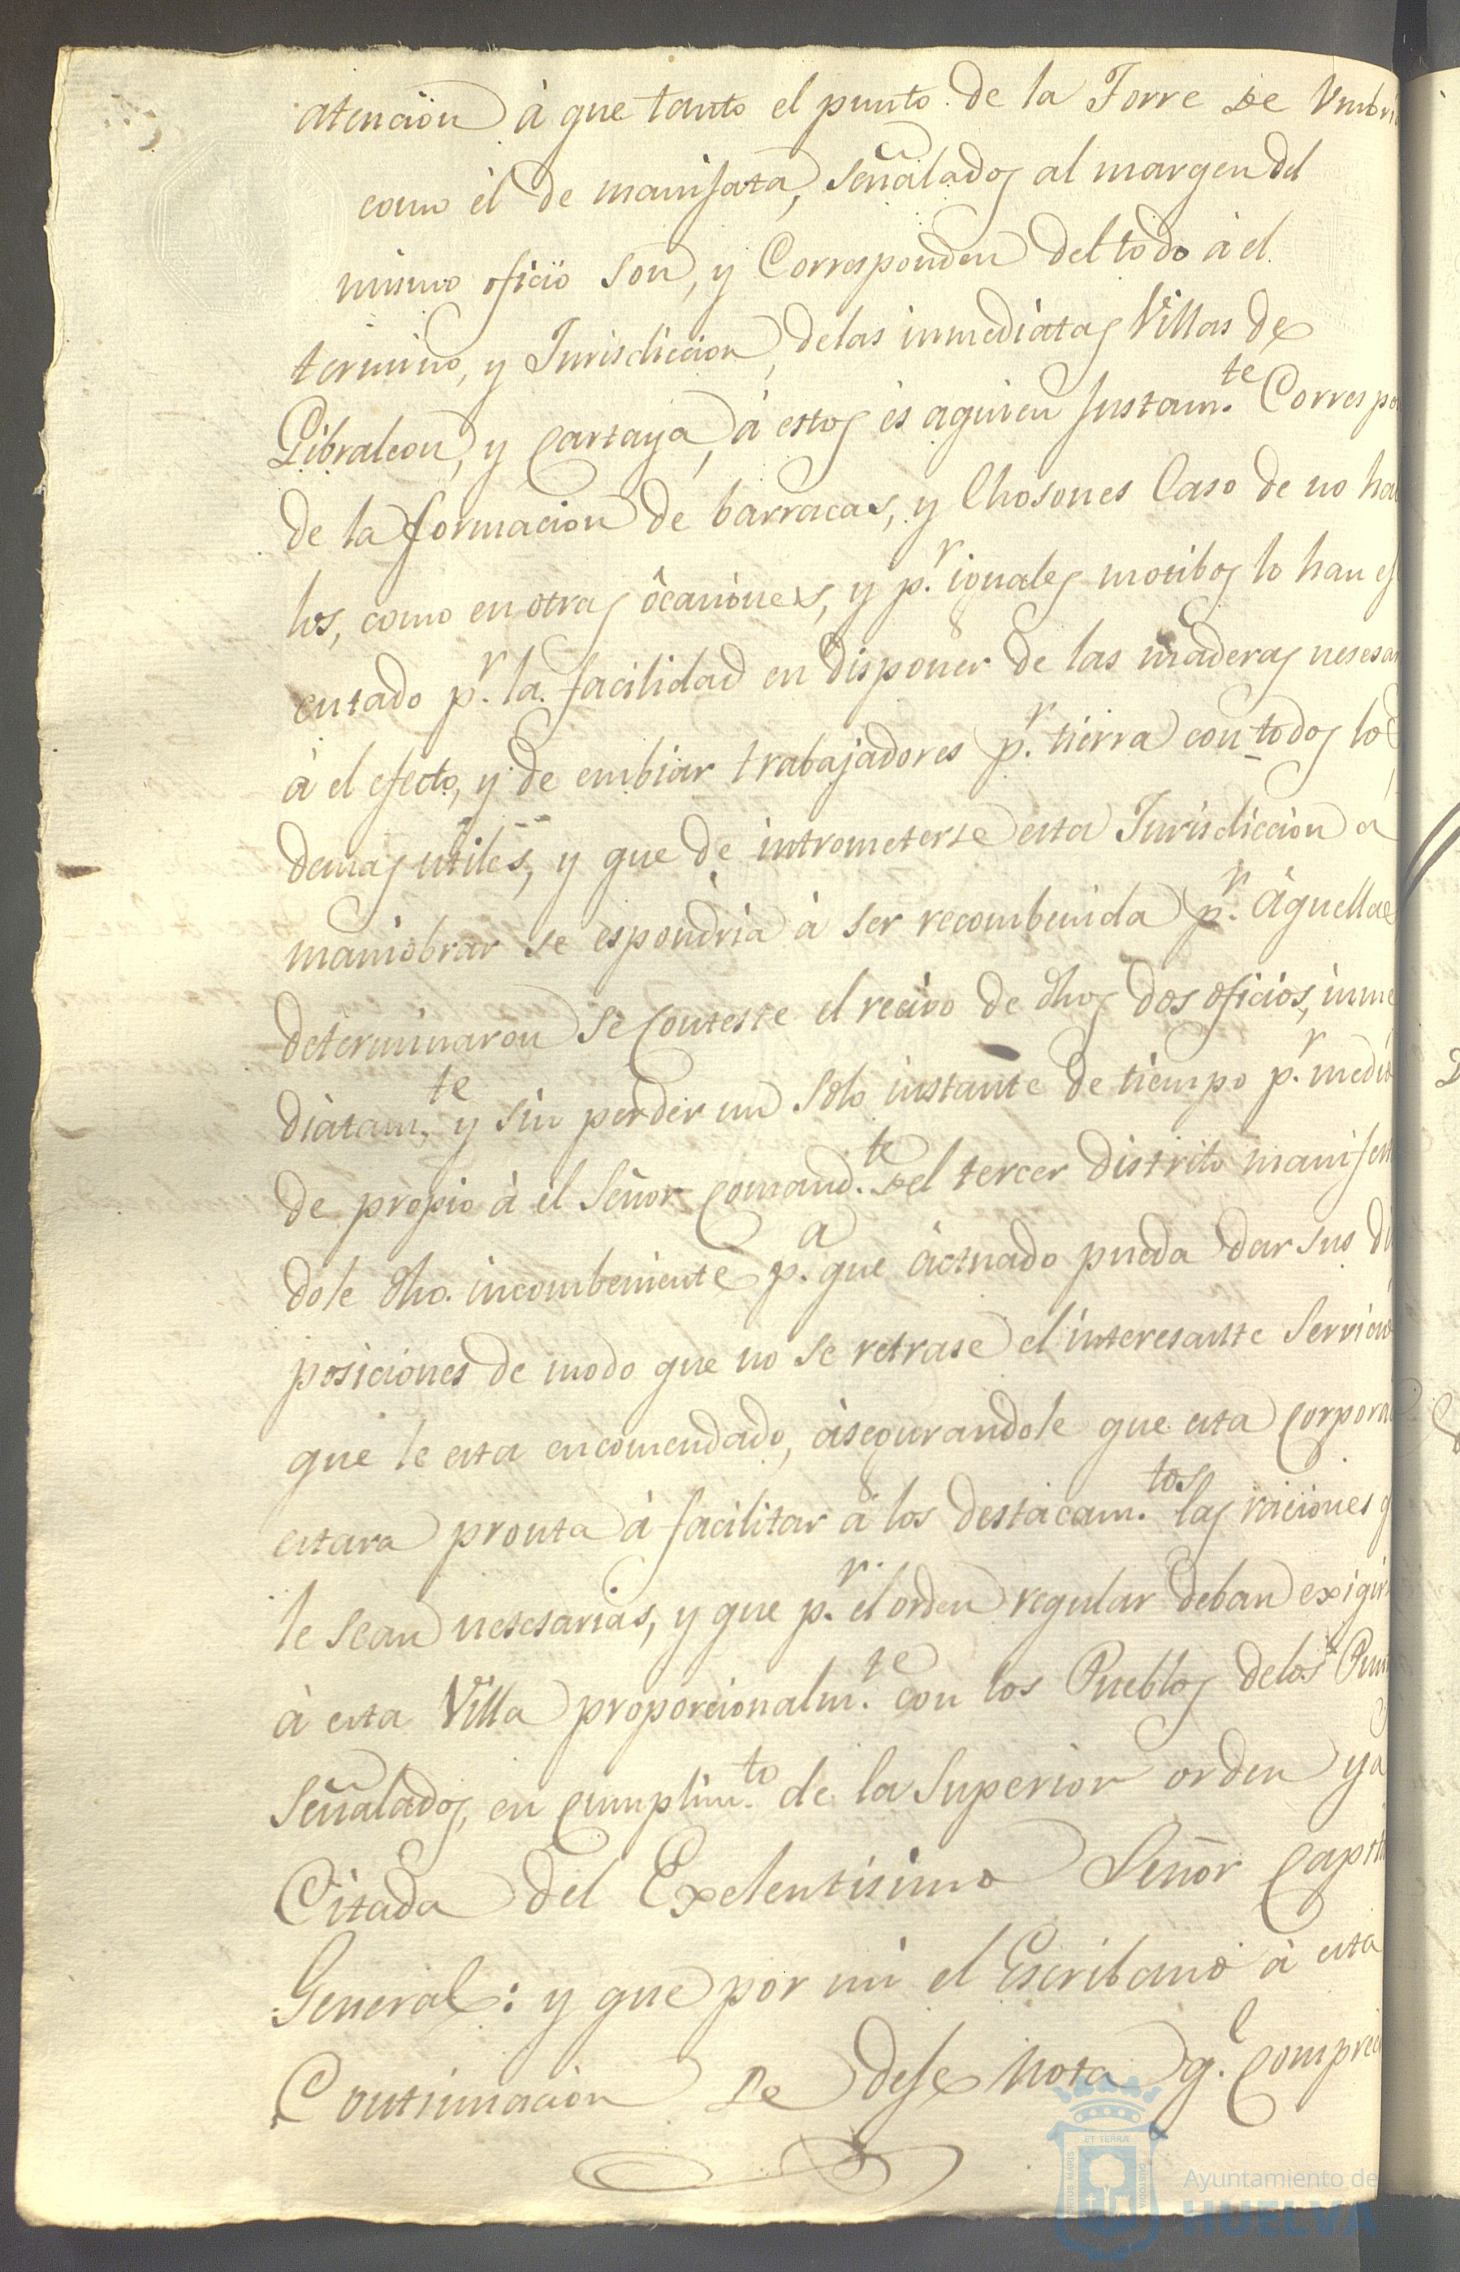 atencion à que tanto el punto de la Torre de Vmbri
como él de manijata, señalados al margen del
mismo oficio son, y Corresponden del todo à el
termino, y Jurisdiccion, delas inmediatas Villas de
Gibraleon, y Cartaya, à estos es aquien Justam.te Correspo
de la formacion de barracas, y Chosones Caso de no ha
los, como en otras ôcaniones, y p.r iguales motibos lo han ej
cutado p.r la facilidad en disponer de las maderas nesesar
à el efecto, y de embiar trabajadores p.r tierra con todos lo
demas utiles, y que de intrometerse esta Jurisdiccion a
maniobrar se espondria à ser recombenida p.r àquellas
determinaron se Conteste el recivo de dhos dos oficios, inme
diatam.te y sin perder un solo instante de tiempo p.r medio
de propio à el Señor Comand.te del tercer distrito manifest
dole dho. incombeniente p.a que àctuado pueda dar sus di
posiciones de modo que no se retrase el interesante Servicio
que le esta encomendado, àsegurandole que esta Corpora
estara pronta à facilitar à los destacam.tos las raciones q
le sean nesesarias, y que p.r el orden regular deban exigir
à esta Villa proporcionalm.te con los Pueblos delos Punt
Señalados, en Cumplim.to de la Superior orden ya
Citada del Exelentisimo Señor Capit
General: y que por mi el Escribano à esta
Continuacion se dese nota q.l Compre
ET TERRA
PORTUS MARIS
CUSTODIA
Ayuntamiento de
HUELVA